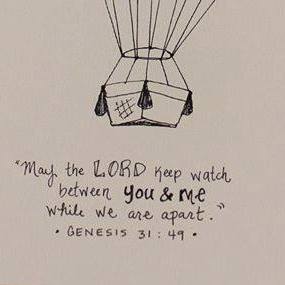 "May the LORD keep watch
between you & me
while we are apart."
• GENESIS 31:49 •